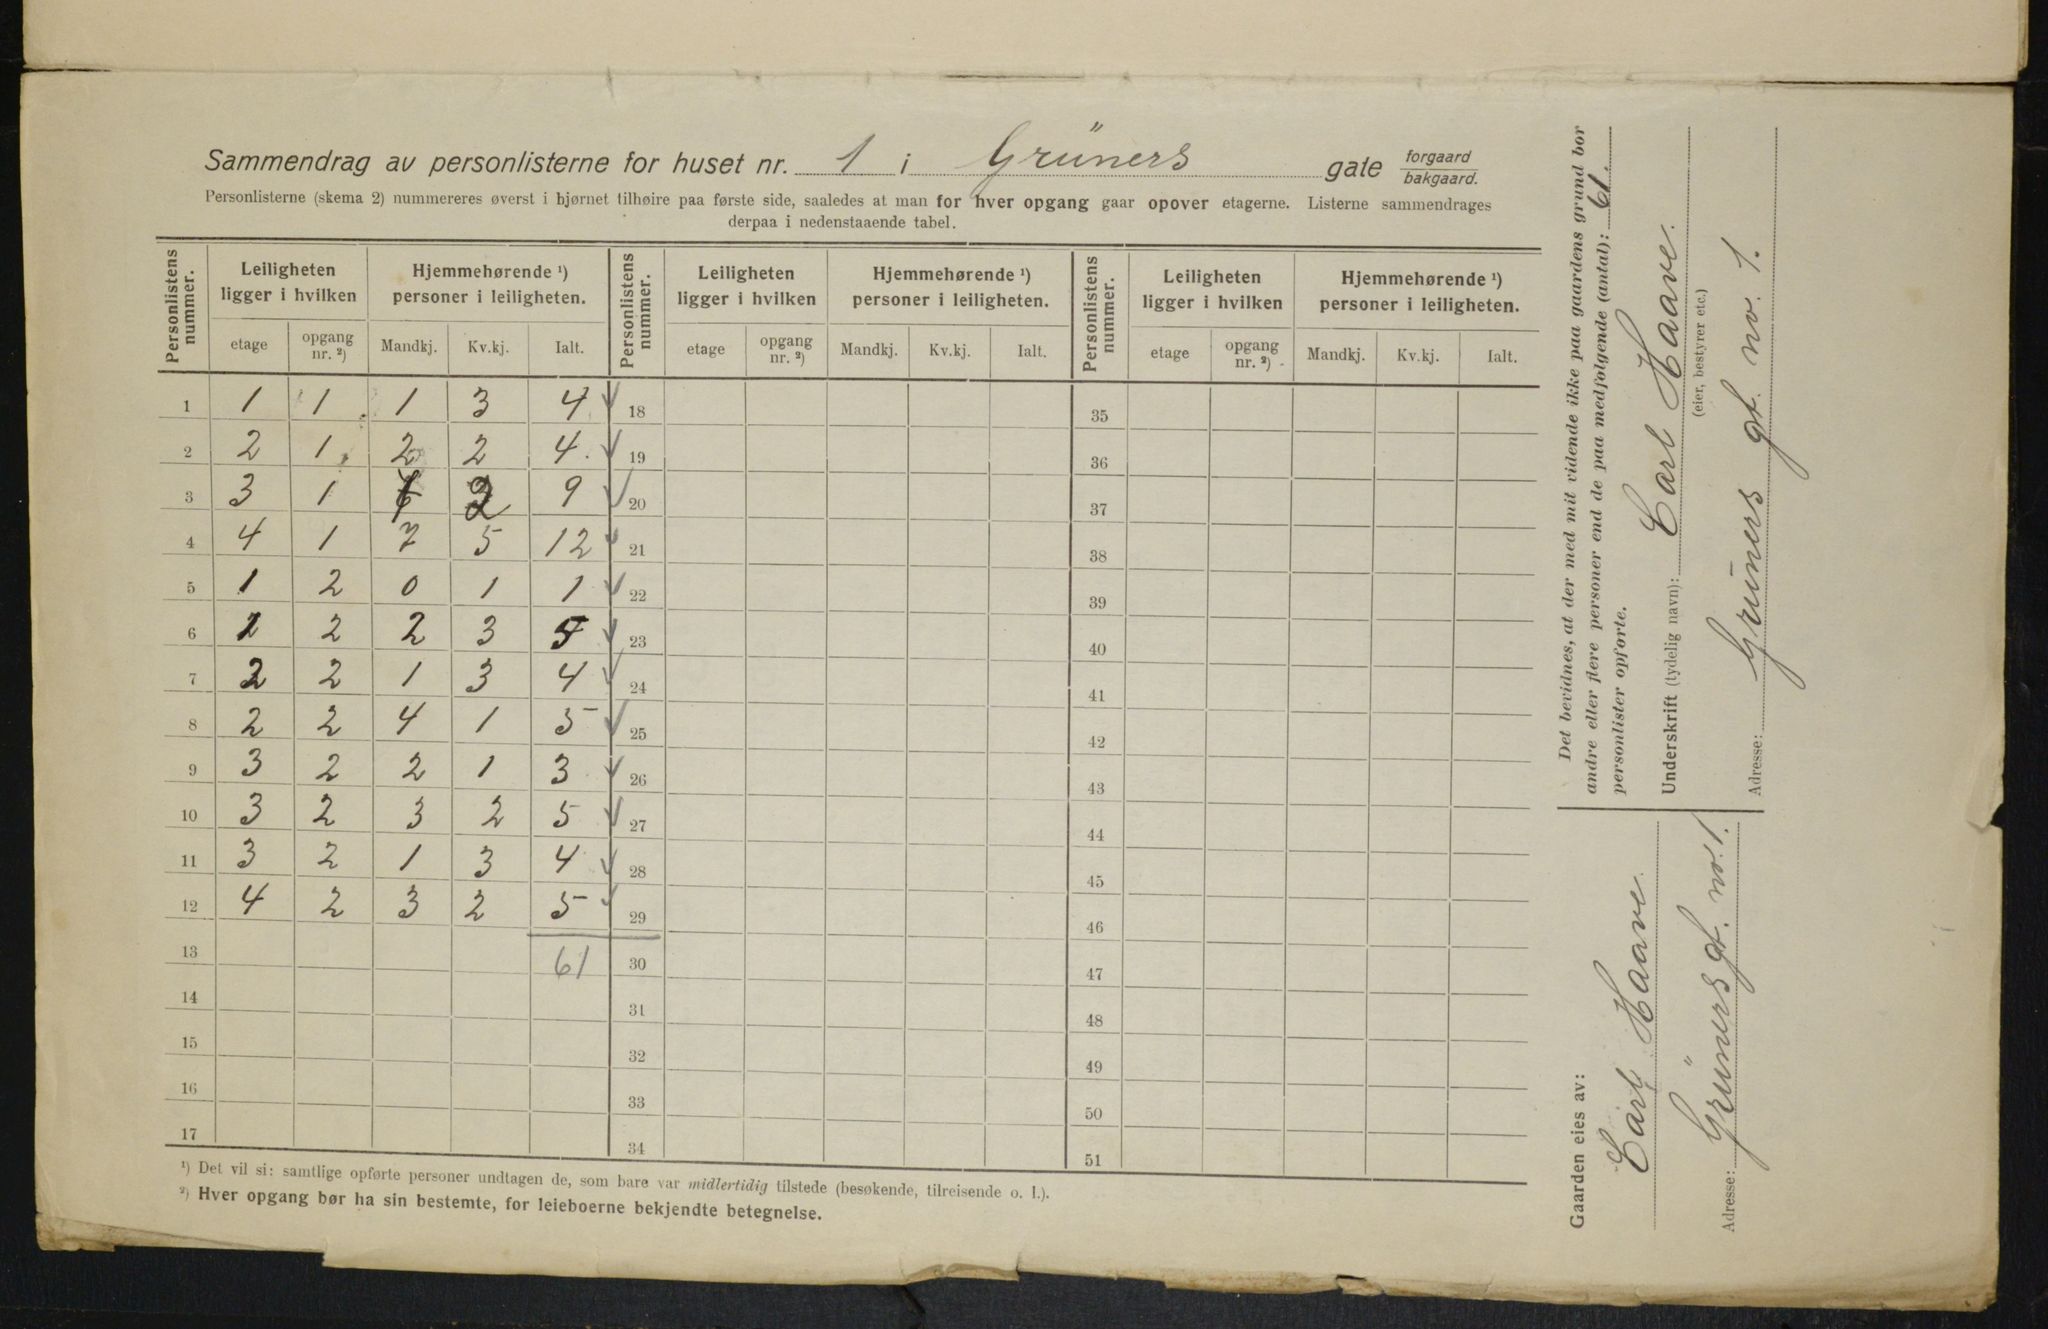 Sammendrag av personlisterne for huset nr. 1 i Grüners gate forgaard bakgaard.
Personlisterne (skema 2) nummereres øverst i hjørnet tilhøire paa første side, saaledes at man for hver opgang gaar opover etagerne. Listerne sammendrages
derpaa i nedenstaaende tabel.
Personlistens nummer. Leiligheten ligger i hvilken Hjemmehørende ¹) personer i leiligheten. Personlistens nummer. Leiligheten ligger i hvilken Hjemmehørende ¹) personer i leiligheten. Personlistens nummer. Leiligheten ligger i hvilken Hjemmehørende ¹) personer i leiligheten.
etage opgang nr. ²) Mandkj. Kv.kj. Ialt. etage opgang nr. ²) Mandkj. Kv.kj. Ialt. etage opgang nr. ²) Mandkj. Kv.kj. Ialt.
1 1 1 1 3 4 ✓ 18 35
2 2 1 2 2 4 ✓ 19 36
3 3 1 2 9 ✓ 20 37
4 4 1 7 5 12 ✓ 21 38
5 1 2 0 1 1 ✓ 22 39
6 1 2 2 3 5 ✓ 23 40
7 2 2 1 3 4 ✓ 24 41
8 2 2 4 1 5 ✓ 25 42
9 3 2 2 1 3 ✓ 26 43
10 3 2 3 2 5 ✓ 27 44
11 3 2 1 3 4 ✓ 28 45
12 4 2 3 2 5 ✓ 29 46
13 61 30 47
14 31 48
15 32 49
16 33 50
17 34 51
¹) Det vil si: samtlige opførte personer undtagen de, som bare var midlertidig tilstede (besøkende, tilreisende o. l.).
²) Hver opgang bør ha sin bestemte, for leieboerne bekjendte betegnelse.
Det bevidnes, at der med mit vidende ikke paa gaardens grund bor
andre eller flere personer end de paa medfølgende (antal): 61.
personlister opførte.
Underskrift (tydelig navn): Carl Haave.
(eier, bestyrer etc.)
Adresse: Grüners gt. no. 1.
Gaarden eies av:
Carl Haave.
Adresse: Grüners gt. no. 1.